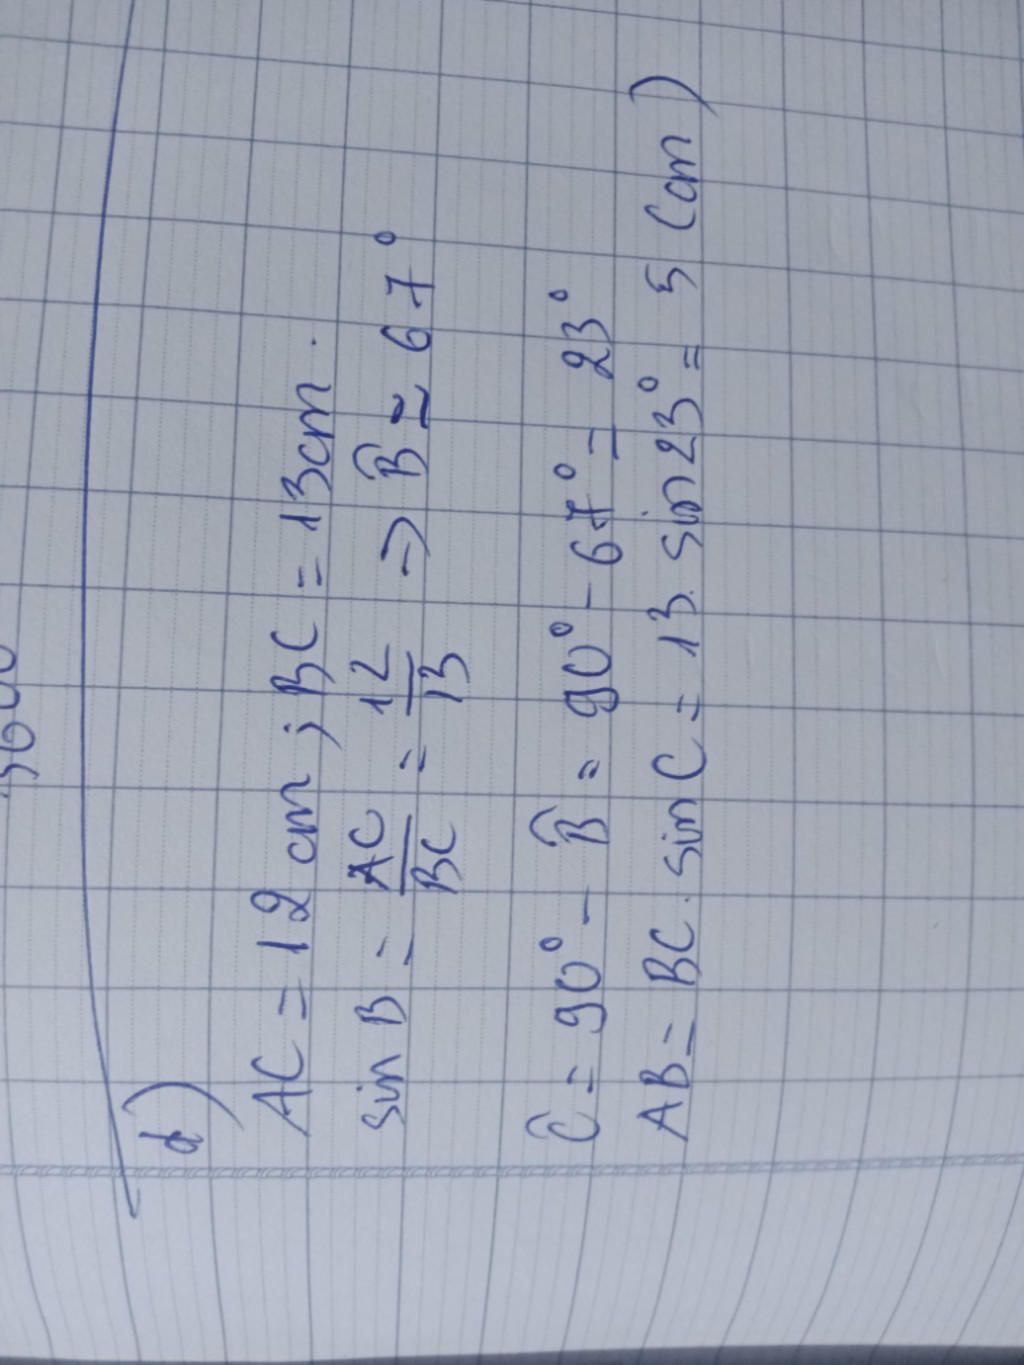 d)
AC = 12 cm ; BC = 13cm.
sin B = AC/BC = 12/13 => B̂ ≃ 67°
Ĉ = 90° - B̂ = 90° - 67° = 23°
AB = BC . sin C = 13. sin 23° = 5 (cm)